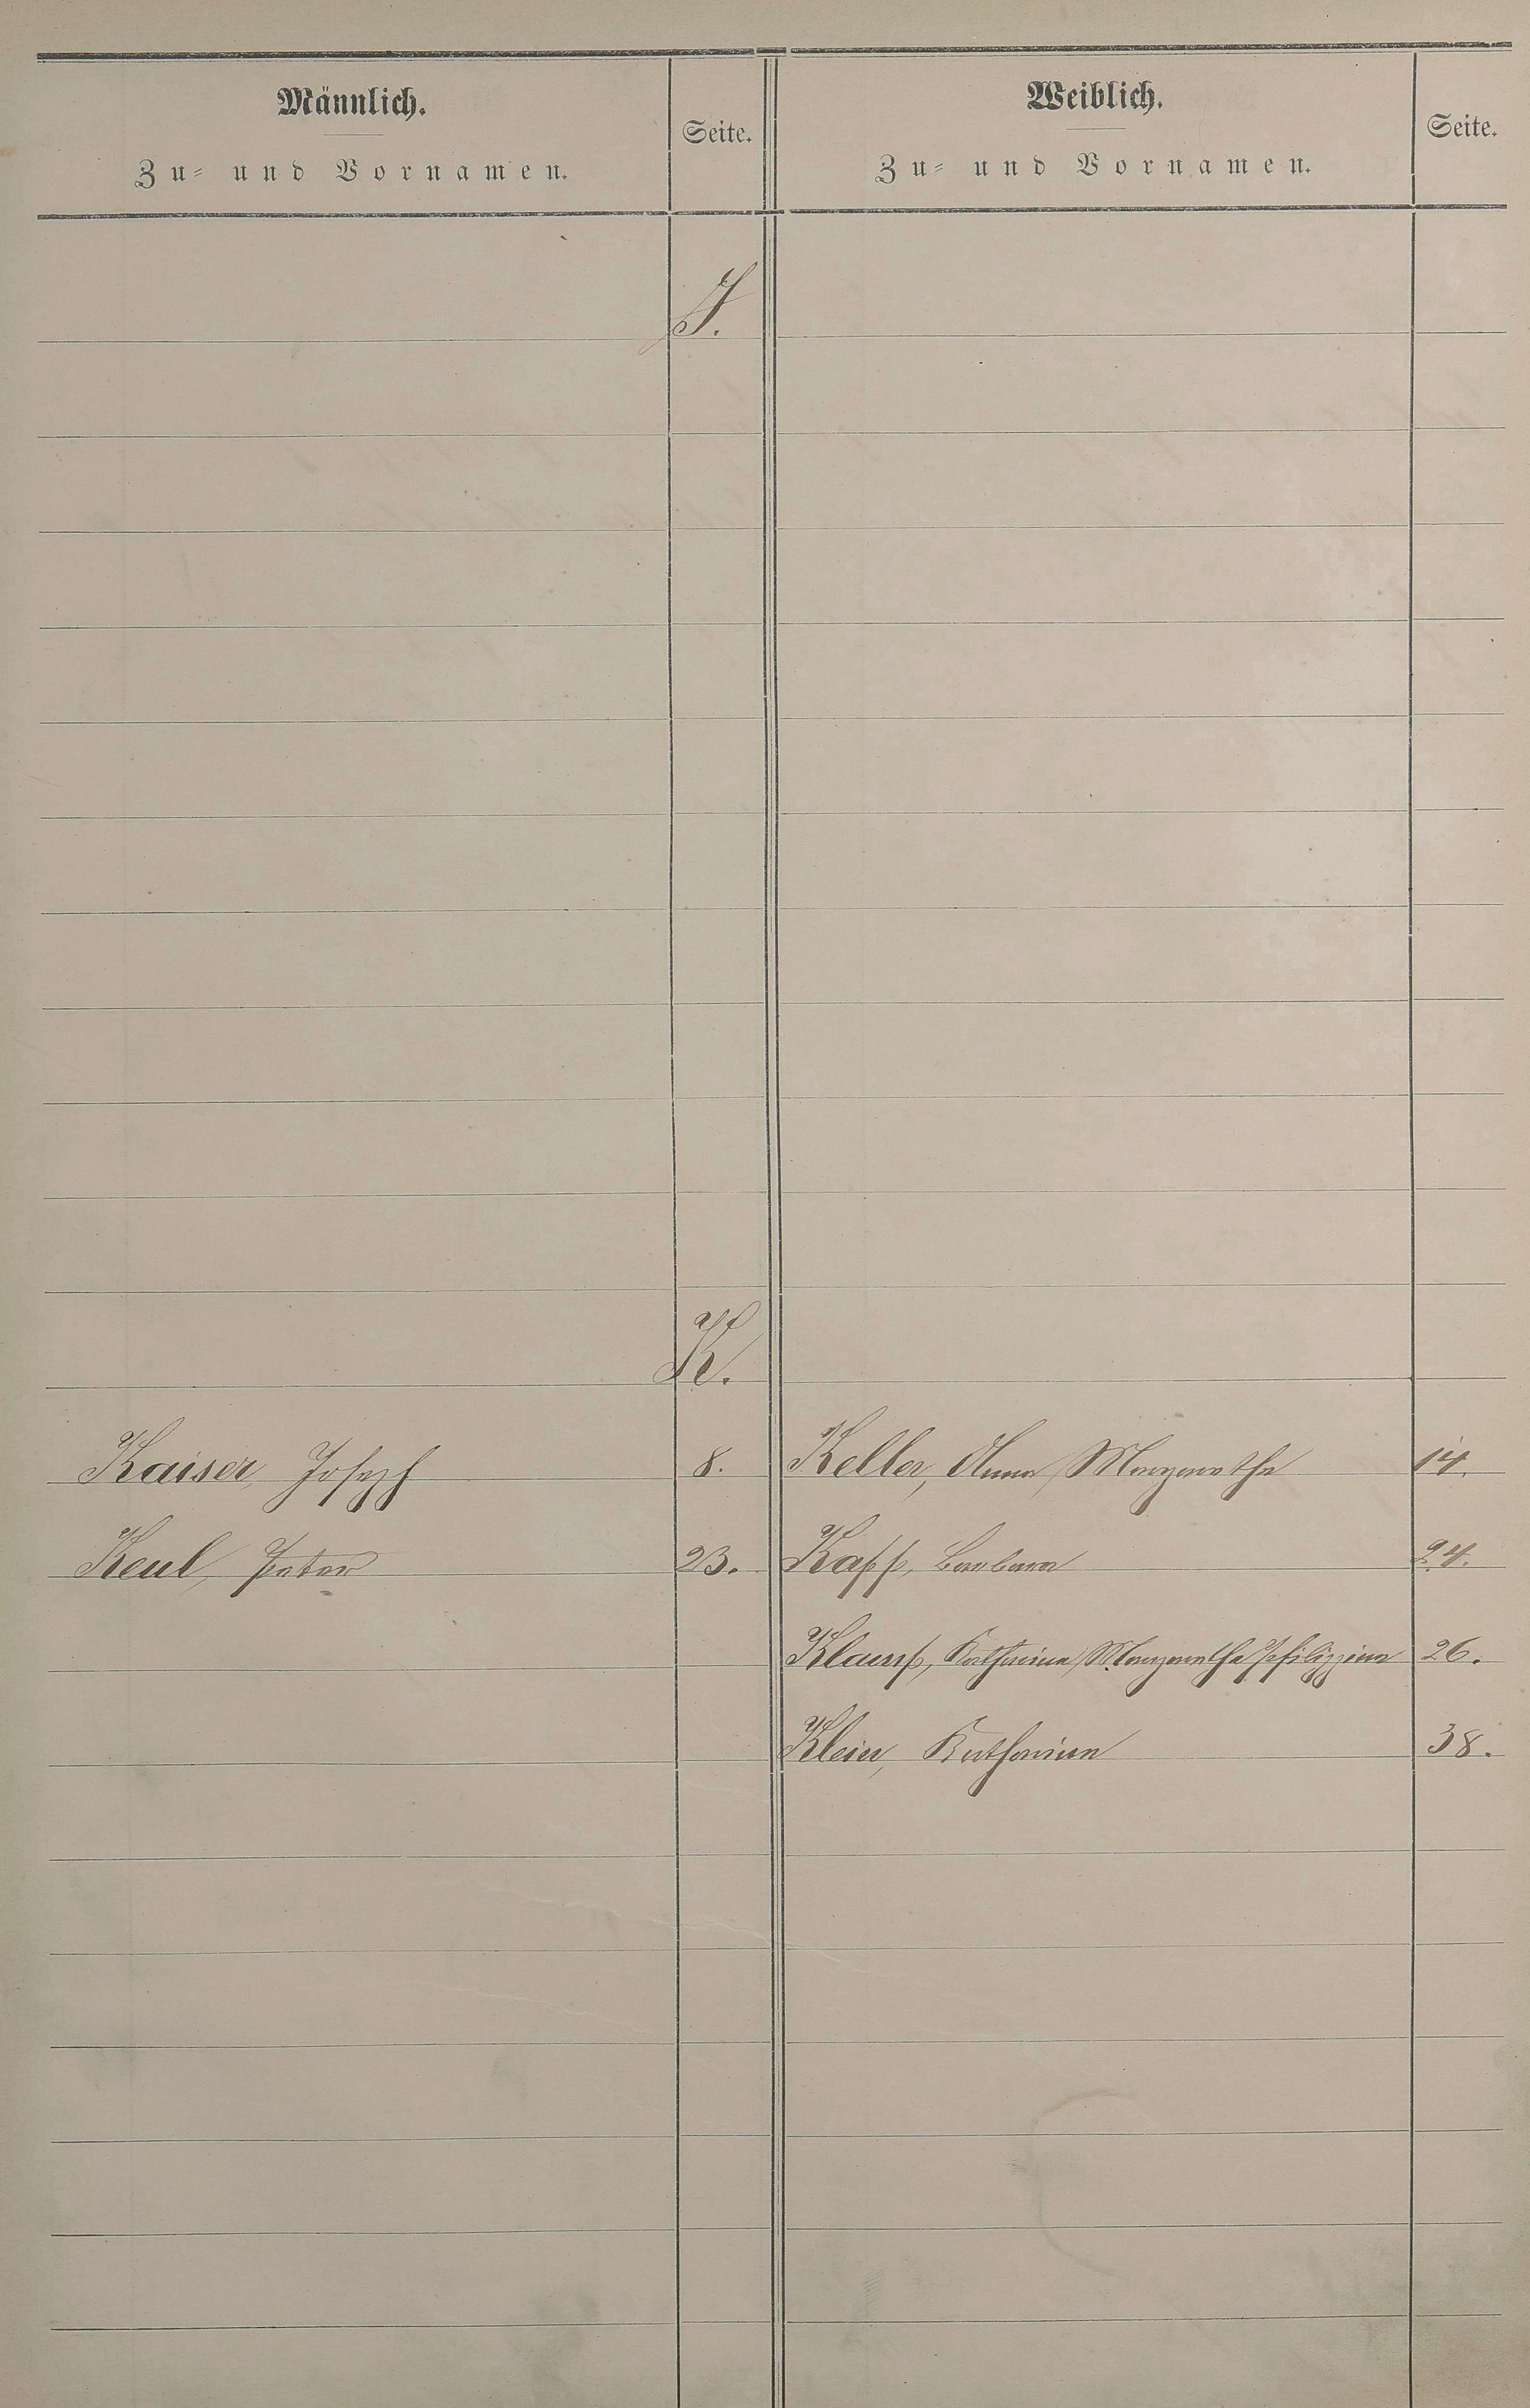 Männlich.
Zu- und Vornamen.
Seite.
Weiblich.
Zu- und Vornamen.
Seite.
J.
K.
Kaiser, Joseph 8. Keller, Anna Margaretha 14.
Keul, Peter 23. Kapp, Barbara 24.
Klamp, Katharina Margaretha Philippina 26.
Klein, Katharina 38.